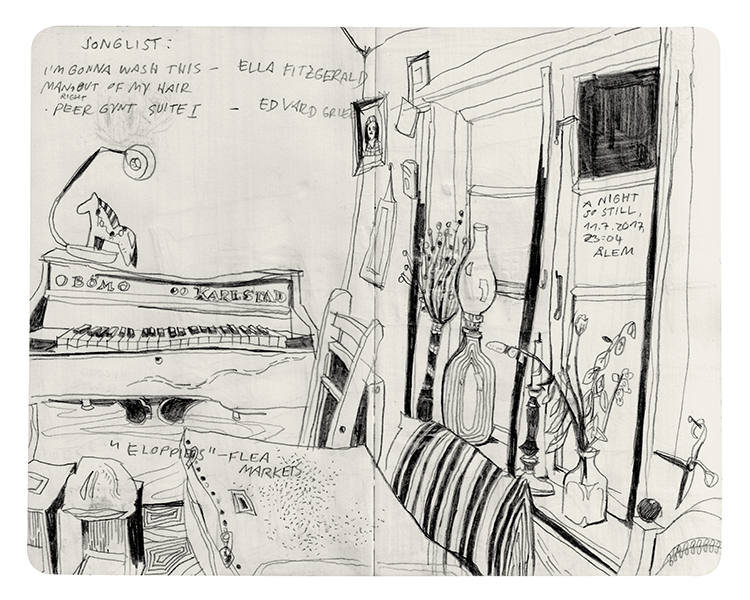 SONGLIST:
I'M GONNA WASH THIS – ELLA FITZGERALD
MAN OUT OF MY HAIR
RIGHT
· PEER GYNT SUITE I – EDVARD GRIEG
A NIGHT
SO STILL,
11.7.2017,
23:04
ÅLEM
OBÖMO KARLSTAD
"LOPPIS" – FLEA
MARKETS